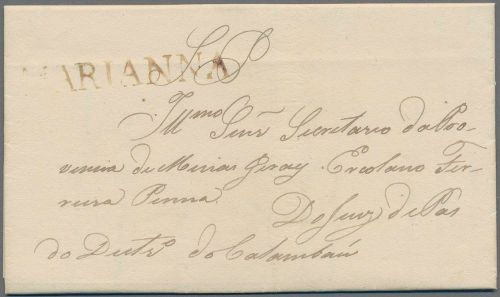 SP
MARIANNA
Illmo Senr̃ Secretario da Pro-
vencia de Minas Geray Ercolano Fer-
reira Penna.
Do Juiz de Pas
do Destro. do Calambáu